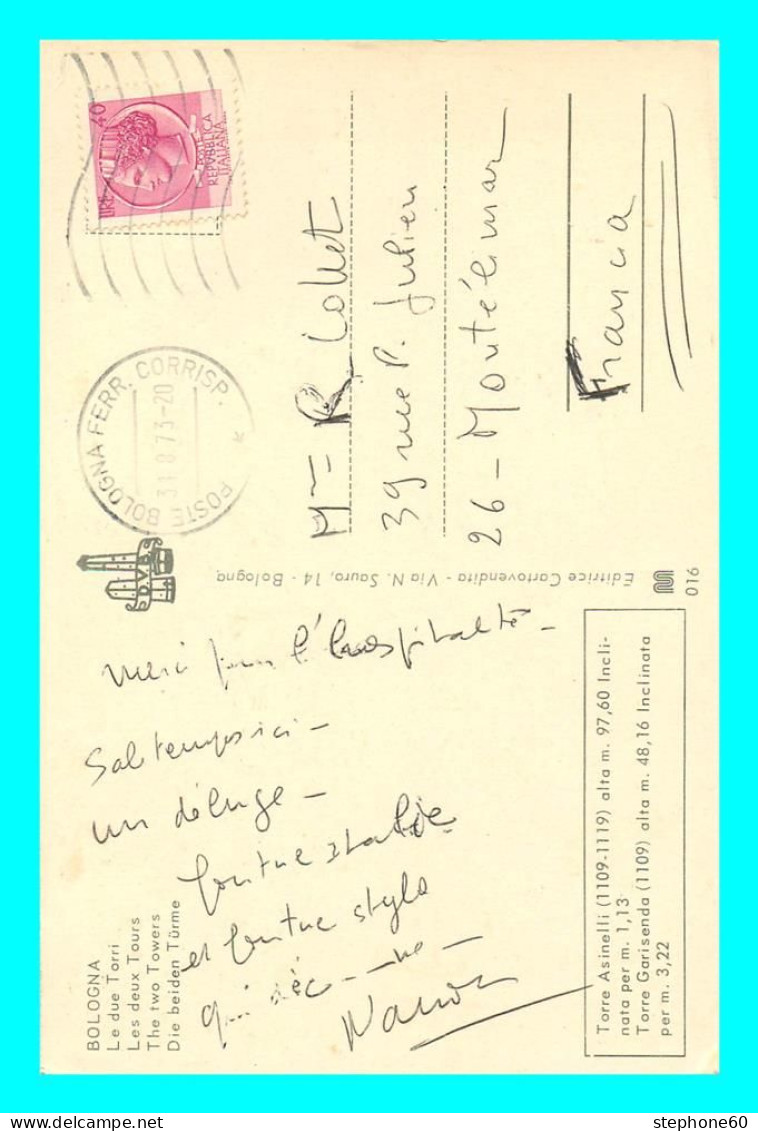 BOLOGNA
Le due Torri
Les deux Tours
The two Towers
Die beiden Türme
merci pour l'hospitalité –
Sale temps ici –
un déluge –
foutue Italie
et foutue stylo
qui déc---ne –
Torre Asinelli (1109-1119) alta m. 97,60 Incli-
nata per m. 1,13
Torre Garisenda (1109) alta m. 48,16 Inclinata
per m. 3,22
D.V.B.
Editrice Cartovendita - Via N. Sauro, 14 - Bologna
016
POSTE BOLOGNA FERR. CORRISP. *
31.8.73-20
LIRE 40
POSTE
REPVBBLICA
ITALIANA
Mme R Collet
39 rue P. Julien
26 – Montélimar
Francia
stephone60